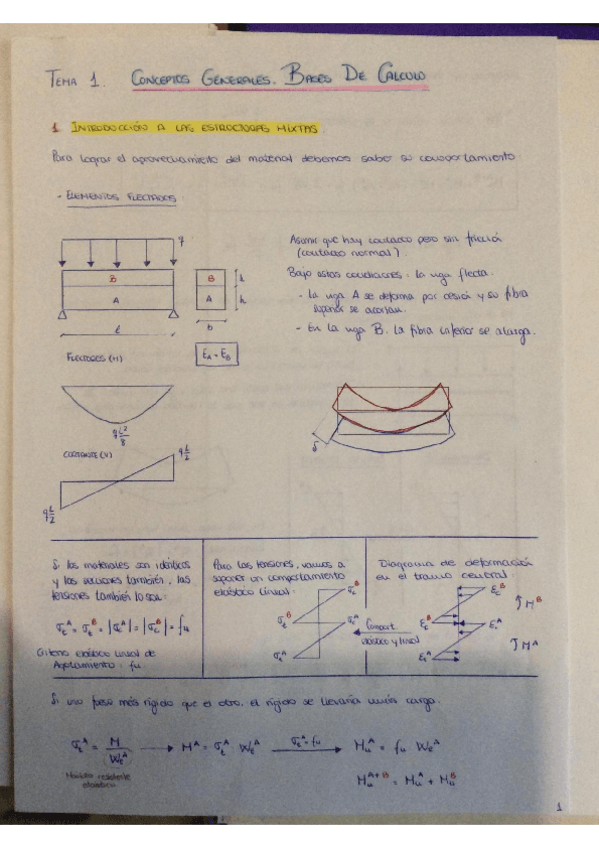 TEMA 1. CONCEPTOS GENERALES. BASES DE CALCULO
1. INTRODUCCIÓN A LAS ESTRUCTURAS MIXTAS.
Para lograr el aprovechamiento del material debemos saber su comportamiento:
- ELEMENTOS FLECTADOS:
q
B
A
B
A
h
h
l
b
E_A = E_B
Asumir que hay contacto pero sin fricción
(contacto normal).
Bajo estas condiciones: la viga flecta.
- La viga A se deforma por flexión y su fibra
superior se acortan.
- En la viga B. La fibra inferior se alarga.
FLECTORES (M)
q l²/8
CORTANTE (V)
q l/2
q l/2
δ
Si los materiales son idénticos
y las secciones también, las
tensiones también lo son:
σ_t^A = σ_t^B = |σ_c^A| = |σ_c^B| = f_u
Criterio elástico lineal de
Agotamiento: f_u
Para las tensiones, vamos a
suponer un comportamiento
elástico lineal:
σ_c^B
σ_t^B
σ_c^A
σ_t^A
Diagrama de deformación
en el tramo central
ε_c^B
ε_t^B
ε_c^A
ε_t^A
M^B
M^A
Comport.
elástico y lineal
Si uno fuese más rígido que el otro, el rígido se llevaría más carga.
σ_t^A = M / W_e^A → M^A = σ_t^A · W_e^A → σ_t^A = f_u → M_u^A = f_u · W_e^A
Módulo resistente
elástico
M_u^{A+B} = M_u^A + M_u^B
1